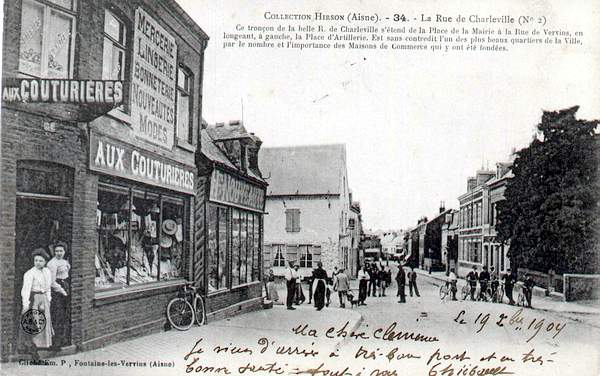 COLLECTION HIRSON (Aisne). - 34. - La Rue de Charleville (No 2)
Ce tronçon de la belle R. de Charleville s'étend de la Place de la Mairie à la Rue de Vervins, en
longeant, à gauche, la Place d'Artillerie. Est sans contredit l'un des plus beaux quartiers de la Ville,
par le nombre et l'importance des Maisons de Commerce qui y ont été fondées.
MERCERIE
LINGERIE
BONNETERIE
NOUVEAUTÉS
MODES
AUX COUTURIÈRES
AUX COUTURIÈRES
Le 19 7bre 1904
Ma chère Clémence
Je viens d'arrivé à très bon port et en très
bonne santé
Cliché Em. P., Fontaine-les-Vervins (Aisne)